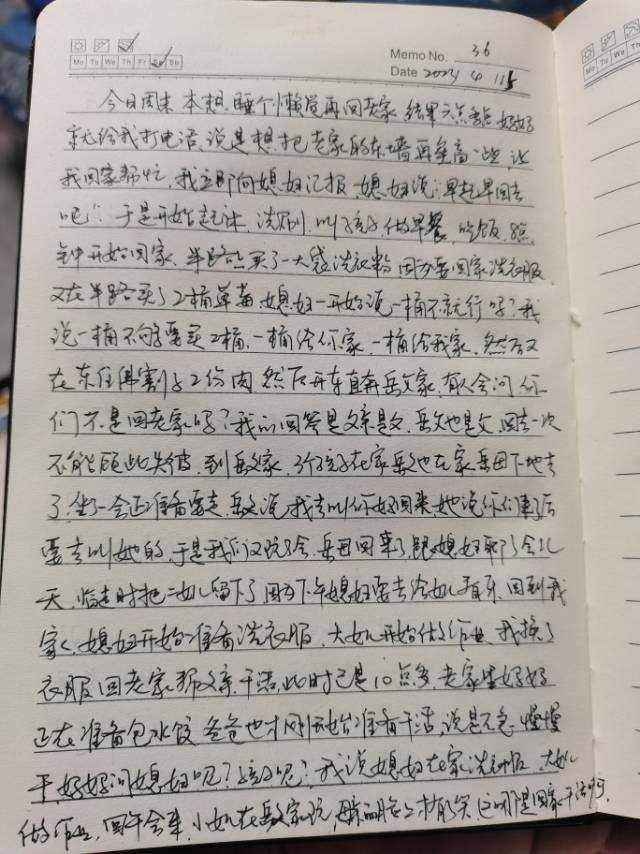 Mo Tu We Th Fr Sa Su
Memo No. 36
Date 2024 4
今日周末,本想睡个懒觉再回老家,结果六点多点好好
就给我打电话,说是想把老家的东墙再垒高一些,让
我回家帮忙,我立即向媳妇汇报,媳妇说:"早起早回去
吧"。于是开始起床,洗刷,叫孩子做早餐,吃饭,
钟开始回家,半路上买了一大袋洗衣粉,因为要回家洗衣服
又在半路买了2桶草莓,媳妇一开始说一桶不就行吗?我
说一桶不够要买2桶,一桶给你家,一桶给我家,然后又
在东住佛割了2份肉,然后开车直奔岳父家,有人会问你
们不是回老家吗?我的回答是父亲是父,岳父也是父,回去一次
不能顾此失彼,到岳父家,3个孩子在家岳父也在家岳母下地去
了,坐一会正准备要走,岳父说我去叫你好回来,她说你们来了后
要去叫她的,于是我们又玩了会,岳母回来了跟媳妇聊了会儿
天,临走时把二女儿留下了,因为下午媳妇要去给女儿看牙,回到我
家,媳妇开始准备洗衣服,大女儿开始做作业,我换了
衣服回老家帮父亲干活,此时已是10点多,老家里好好
正在准备包水饺,爸爸也才刚开始准备干活,说是不急,慢慢
干,好好问媳妇呢?孩子呢?我说媳妇在家洗衣服,大女儿
做作业,中午会来,小女儿在岳父家玩,这哪是回家干活